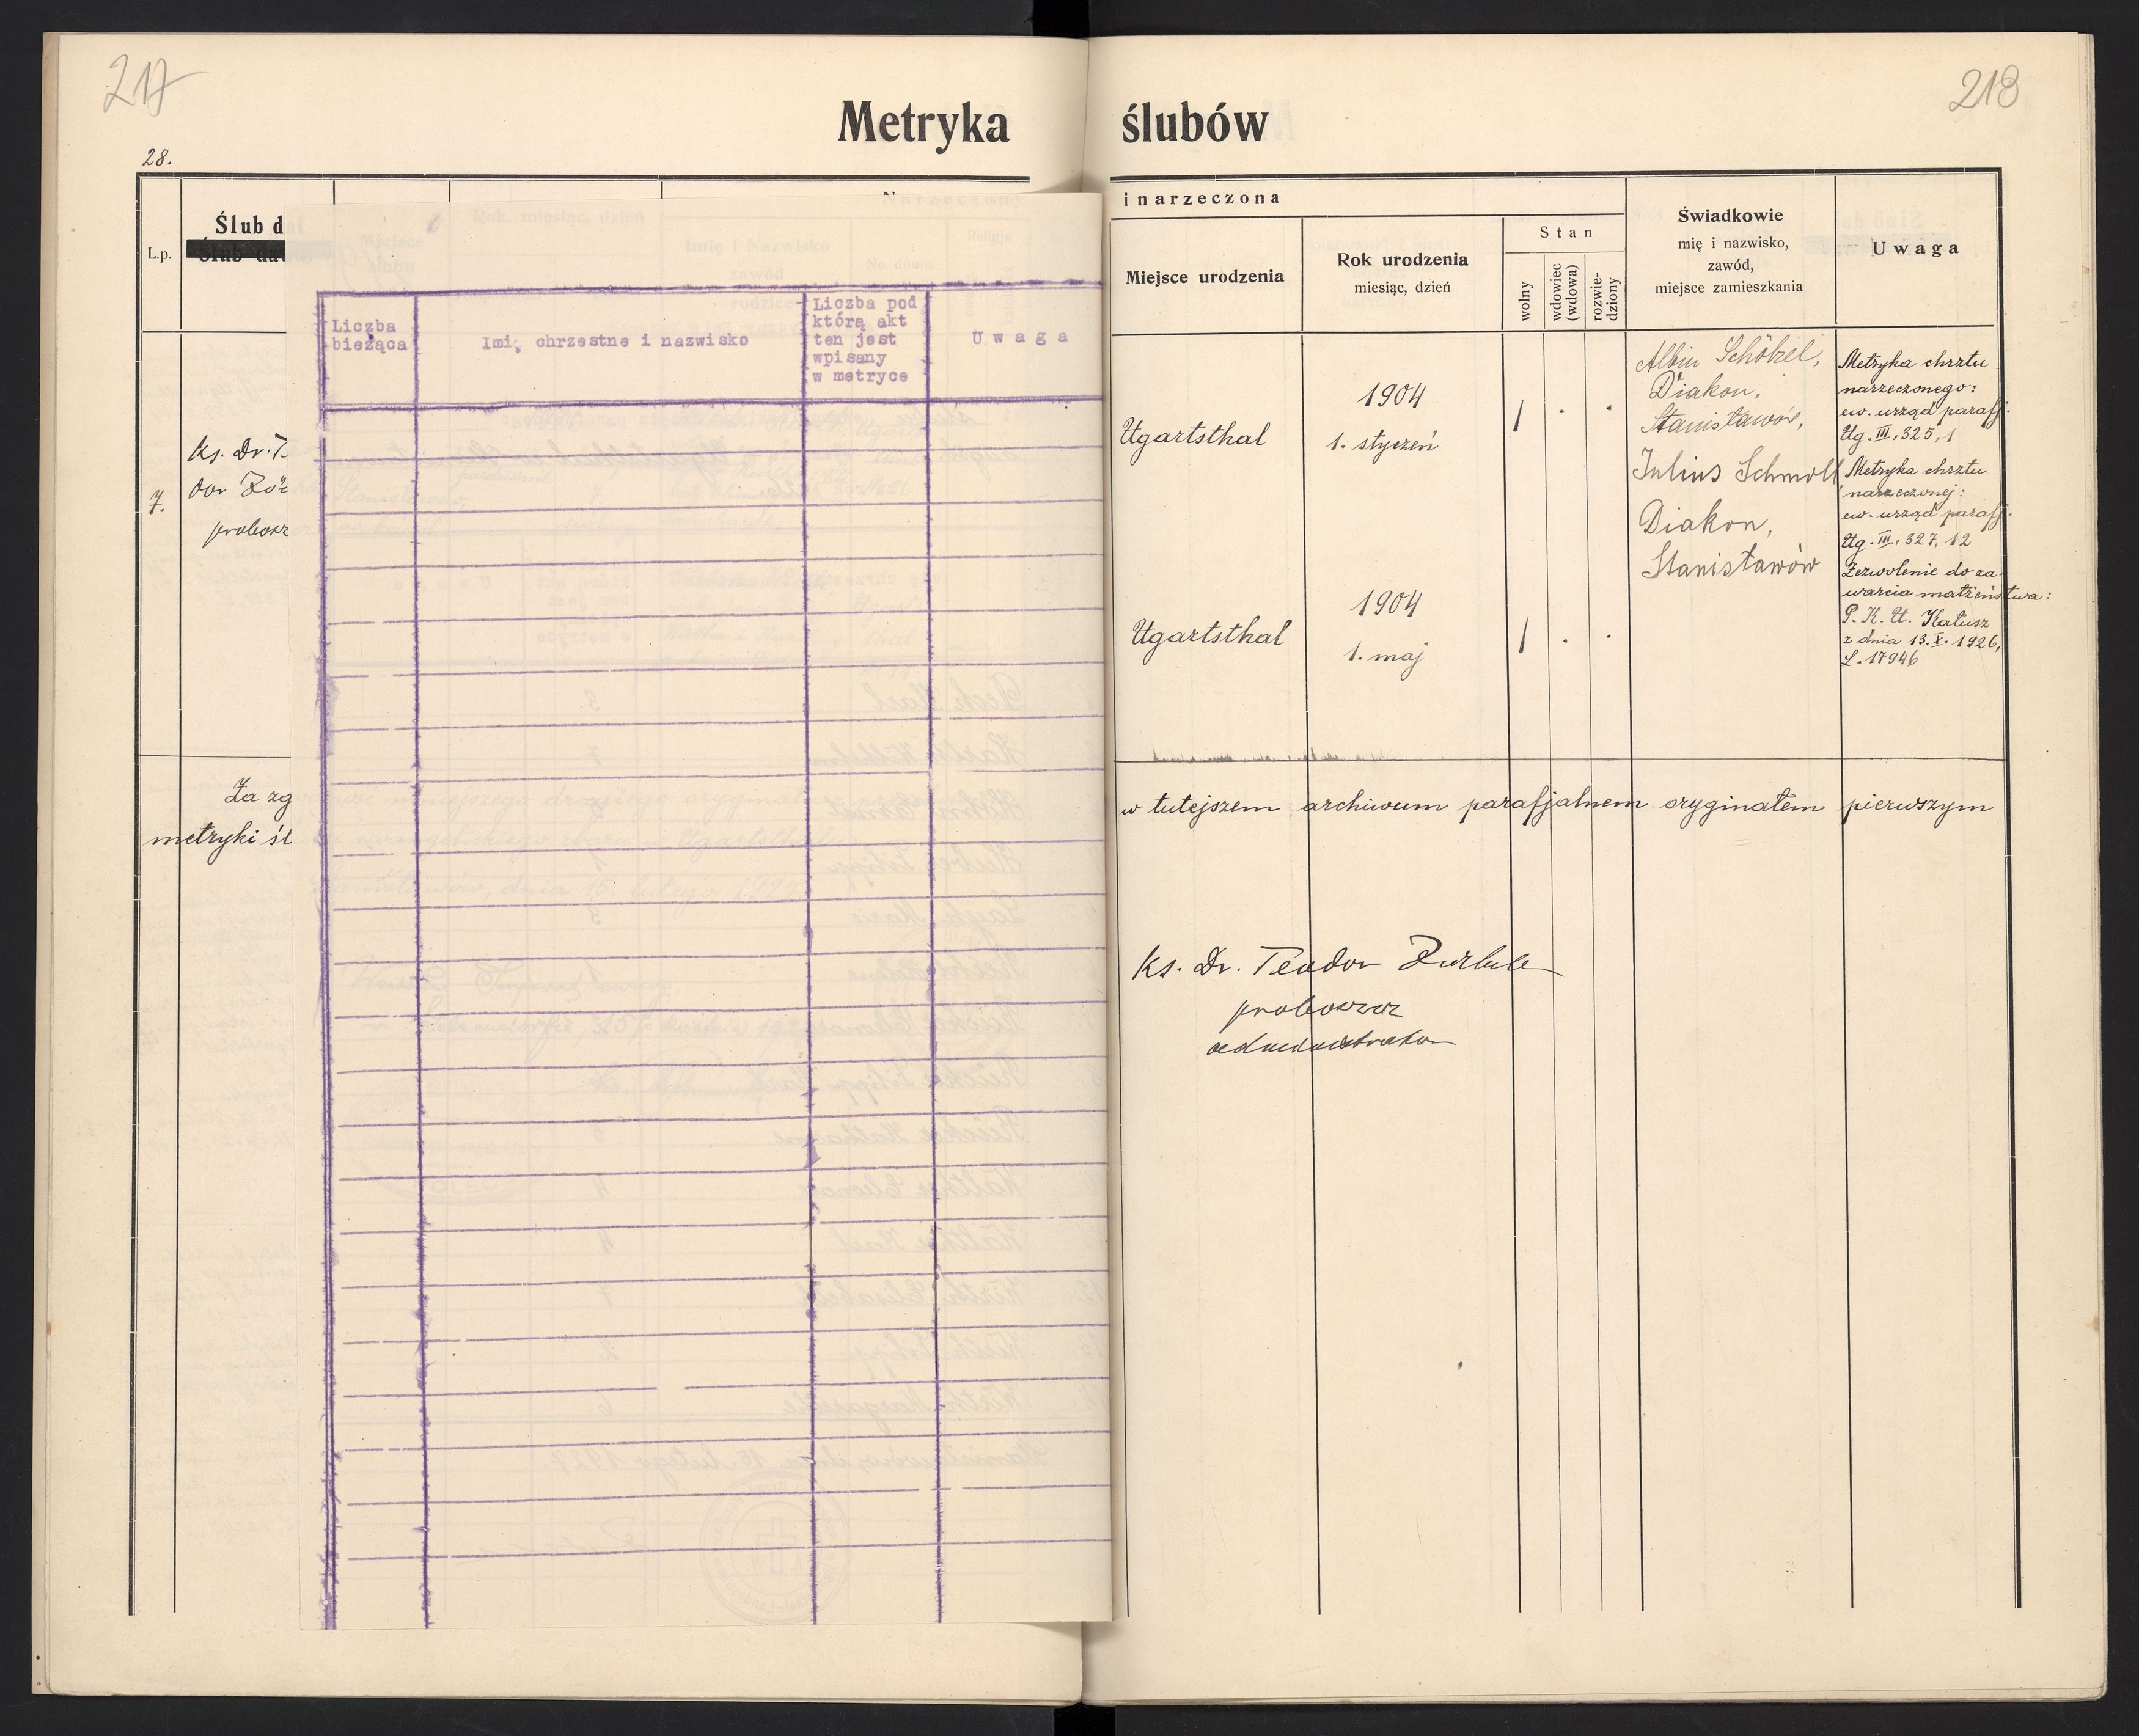 217
218
Metryka ślubów
28.
L.p.
Ślub d
Ślub dat
i narzeczona
Miejsce urodzenia
Rok urodzenia
miesiąc, dzień
Stan
wolny
wdowiec
(wdowa)
rozwie-
dziony
Świadkowie
mię i nazwisko,
zawód,
miejsce zamieszkania
Uwaga
Liczba
bieżąca
Imię chrzestne i nazwisko
Liczba pod
którą akt
ten jest
wpisany
w metryce
Uwaga
7.
Ks. Dr. T
dor Zö
probosz
Ugartsthal
1904
1. styczeń
Albin Schöbel,
Diakon,
Stanisławów,
Julius Schmoll
Diakon,
Stanisławów
Metryka chrztu
narzeczonego:
ew. urząd parafj.
Ug. III, 325, 1
Metryka chrztu
narzeczonej:
ew. urząd parafj.
Ug. III, 327, 12
Zezwolenie do za-
warcia małżeństwa:
P. K. U. Kałusz
z dnia 13. X. 1926,
L. 17946
Ugartsthal
1904
1. maj
Za zg
metryki śl
w tutejszem archiwum parafjalnem oryginałem pierwszym
Ks. Dr. Teodor
proboszcz
administrator